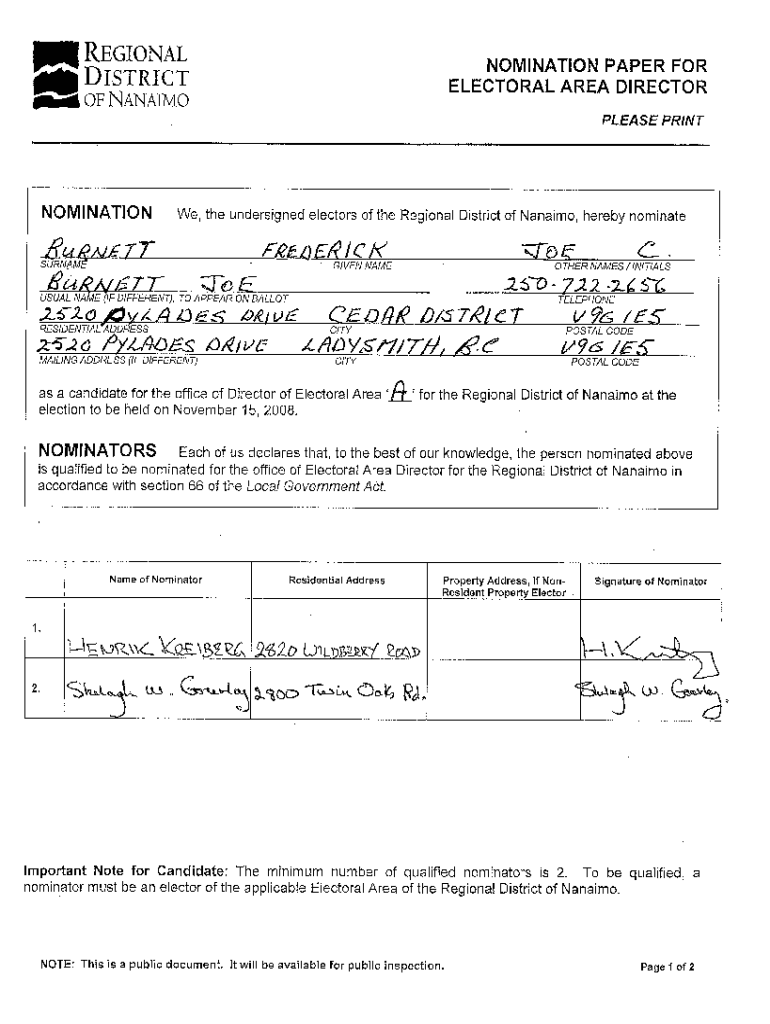 REGIONAL
DISTRICT
OF NANAIMO
NOMINATION PAPER FOR
ELECTORAL AREA DIRECTOR
PLEASE PRINT
NOMINATION We, the undersigned electors of the Regional District of Nanaimo, hereby nominate
BURNETT FREDERICK JOE C.
SURNAME GIVEN NAME OTHER NAMES / INITIALS
BURNETT JOE 250-722-2656
USUAL NAME (IF DIFFERENT), TO APPEAR ON BALLOT TELEPHONE
2520 PYLADES DRIVE CEDAR DISTRICT V9G 1E5
RESIDENTIAL ADDRESS CITY POSTAL CODE
2520 PYLADES DRIVE LADYSMITH, B.C V9G 1E5
MAILING ADDRESS (IF DIFFERENT) CITY POSTAL CODE
as a candidate for the office of Director of Electoral Area 'A' for the Regional District of Nanaimo at the
election to be held on November 15, 2008.
NOMINATORS Each of us declares that, to the best of our knowledge, the person nominated above
is qualified to be nominated for the office of Electoral Area Director for the Regional District of Nanaimo in
accordance with section 66 of the Local Government Act.
Name of Nominator Residential Address Property Address, If Non-
Resident Property Elector Signature of Nominator
1. HENRIK KREIBERG 2820 WILDBERRY ROAD
2. Shelagh W. Gourlay 2800 Twin Oaks Rd. Shelagh W. Gourlay
Important Note for Candidate: The minimum number of qualified nominators is 2. To be qualified, a
nominator must be an elector of the applicable Electoral Area of the Regional District of Nanaimo.
NOTE: This is a public document. It will be available for public inspection. Page 1 of 2